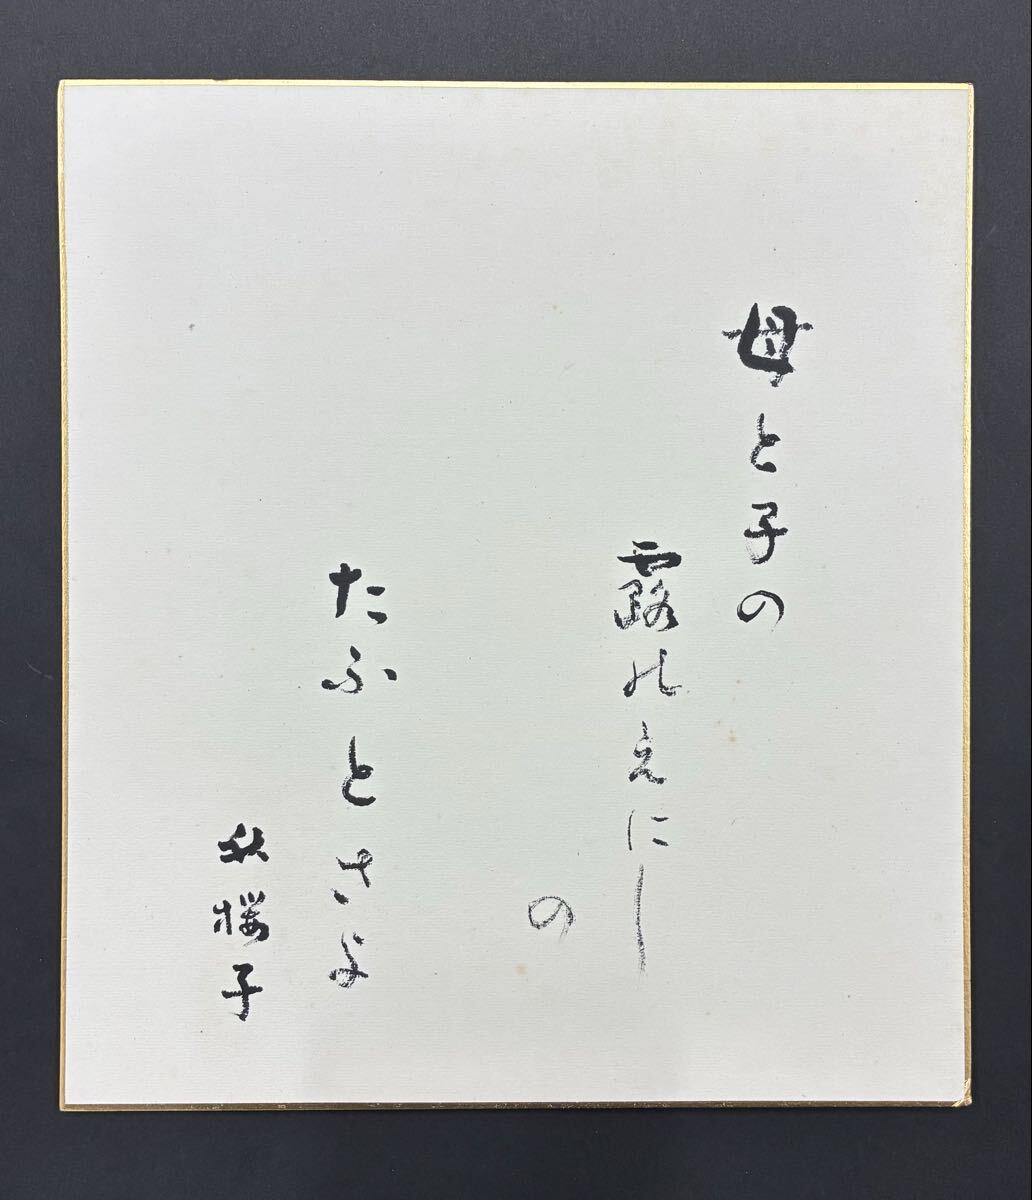 母と子の
露のえにし
の
たふとさよ
秋桜子